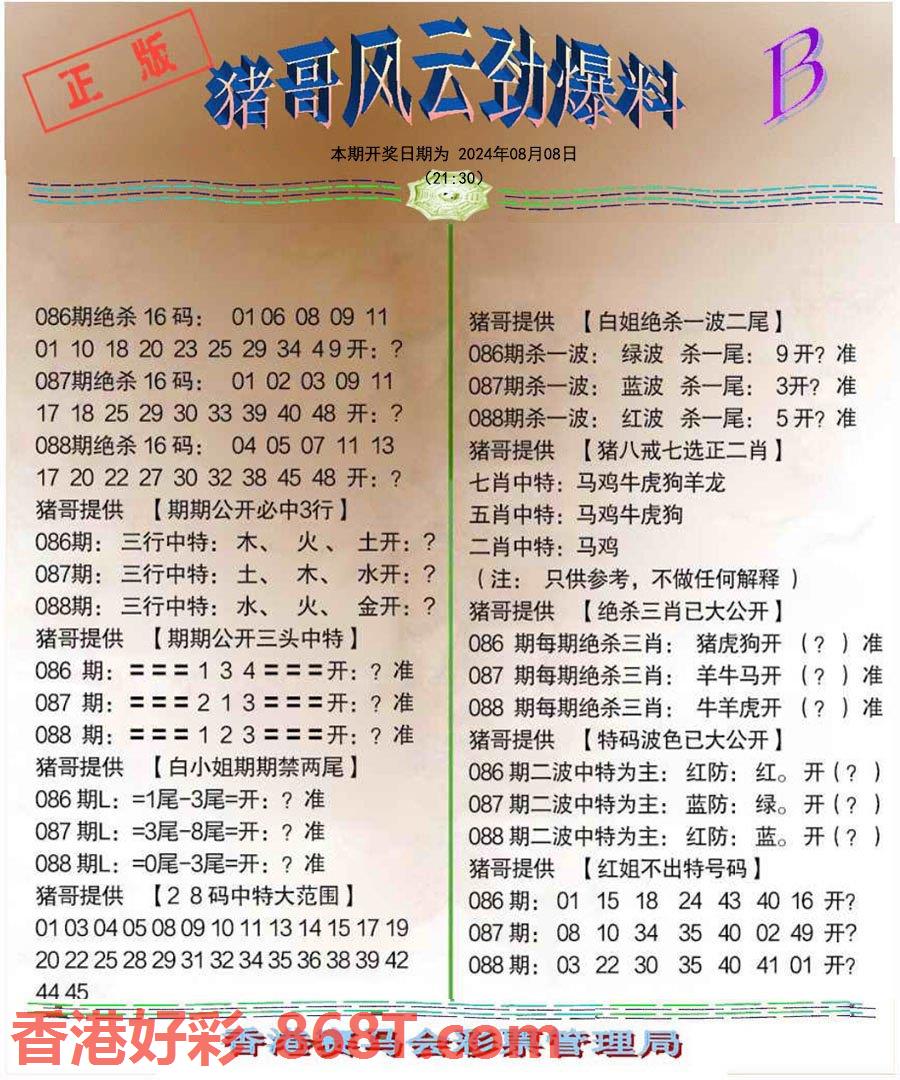 正版
猪哥风云劲爆料
B
本期开奖日期为 2024年08月08日
(21:30)
086期绝杀 16 码： 01 06 08 09 11
01 10 18 20 23 25 29 34 4 9 开：?
087期绝杀 16 码： 01 02 03 09 11
17 18 25 29 30 33 39 40 48 开：?
088期绝杀 16 码： 04 05 07 11 13
17 20 22 27 30 32 38 45 48 开：?
猪哥提供 【期期公开必中3行】
086期： 三行中特：木、 火 、 土开：?
087期： 三行中特：土、 木、 水开：?
088期： 三行中特：水、 火、 金开：?
猪哥提供 【期期公开三头中特】
086 期：＝＝＝1 3 4＝＝＝开：? 准
087 期：＝＝＝2 1 3＝＝＝开：? 准
088 期：＝＝＝1 2 3＝＝＝开：? 准
猪哥提供 【白小姐期期禁两尾】
086 期L：=1尾-3尾=开：? 准
087 期L：=3尾-8尾=开：? 准
088 期L：=0尾-3尾=开：? 准
猪哥提供 【2 8 码中特大范围】
01 03 04 05 08 09 10 11 13 14 15 17 19
20 22 25 28 29 31 32 34 35 36 38 39 42
44 45
猪哥提供 【白姐绝杀一波二尾】
086期杀一波： 绿波 杀一尾： 9 开? 准
087期杀一波： 蓝波 杀一尾： 3开? 准
088期杀一波： 红波 杀一尾： 5 开? 准
猪哥提供 【猪八戒七选正二肖】
七肖中特：马鸡牛虎狗羊龙
五肖中特：马鸡牛虎狗
二肖中特：马鸡
（注： 只供参考，不做任何解释 ）
猪哥提供 【绝杀三肖已大公开】
086 期每期绝杀三肖： 猪虎狗开 （？）准
087 期每期绝杀三肖： 羊牛马开 （？）准
088 期每期绝杀三肖： 牛羊虎开 （？）准
猪哥提供 【特码波色已大公开】
086 期二波中特为主：红防：红。开（？）
087 期二波中特为主：蓝防：绿。开（？）
088 期二波中特为主：红防：蓝。开（？）
猪哥提供 【红姐不出特号码】
086 期： 01 15 18 24 43 40 16 开?
087 期： 08 10 34 35 40 02 49 开?
088 期： 03 22 30 35 40 41 01 开?
香港赛马会彩票管理局
香港好彩-868T.com